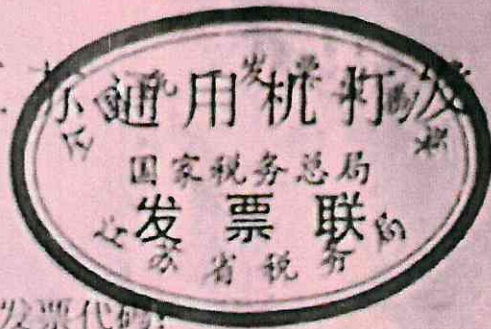 苏通用机打发
全国统一发票监制章
国家税务总局
发票联
江苏省税务局
发票代码: